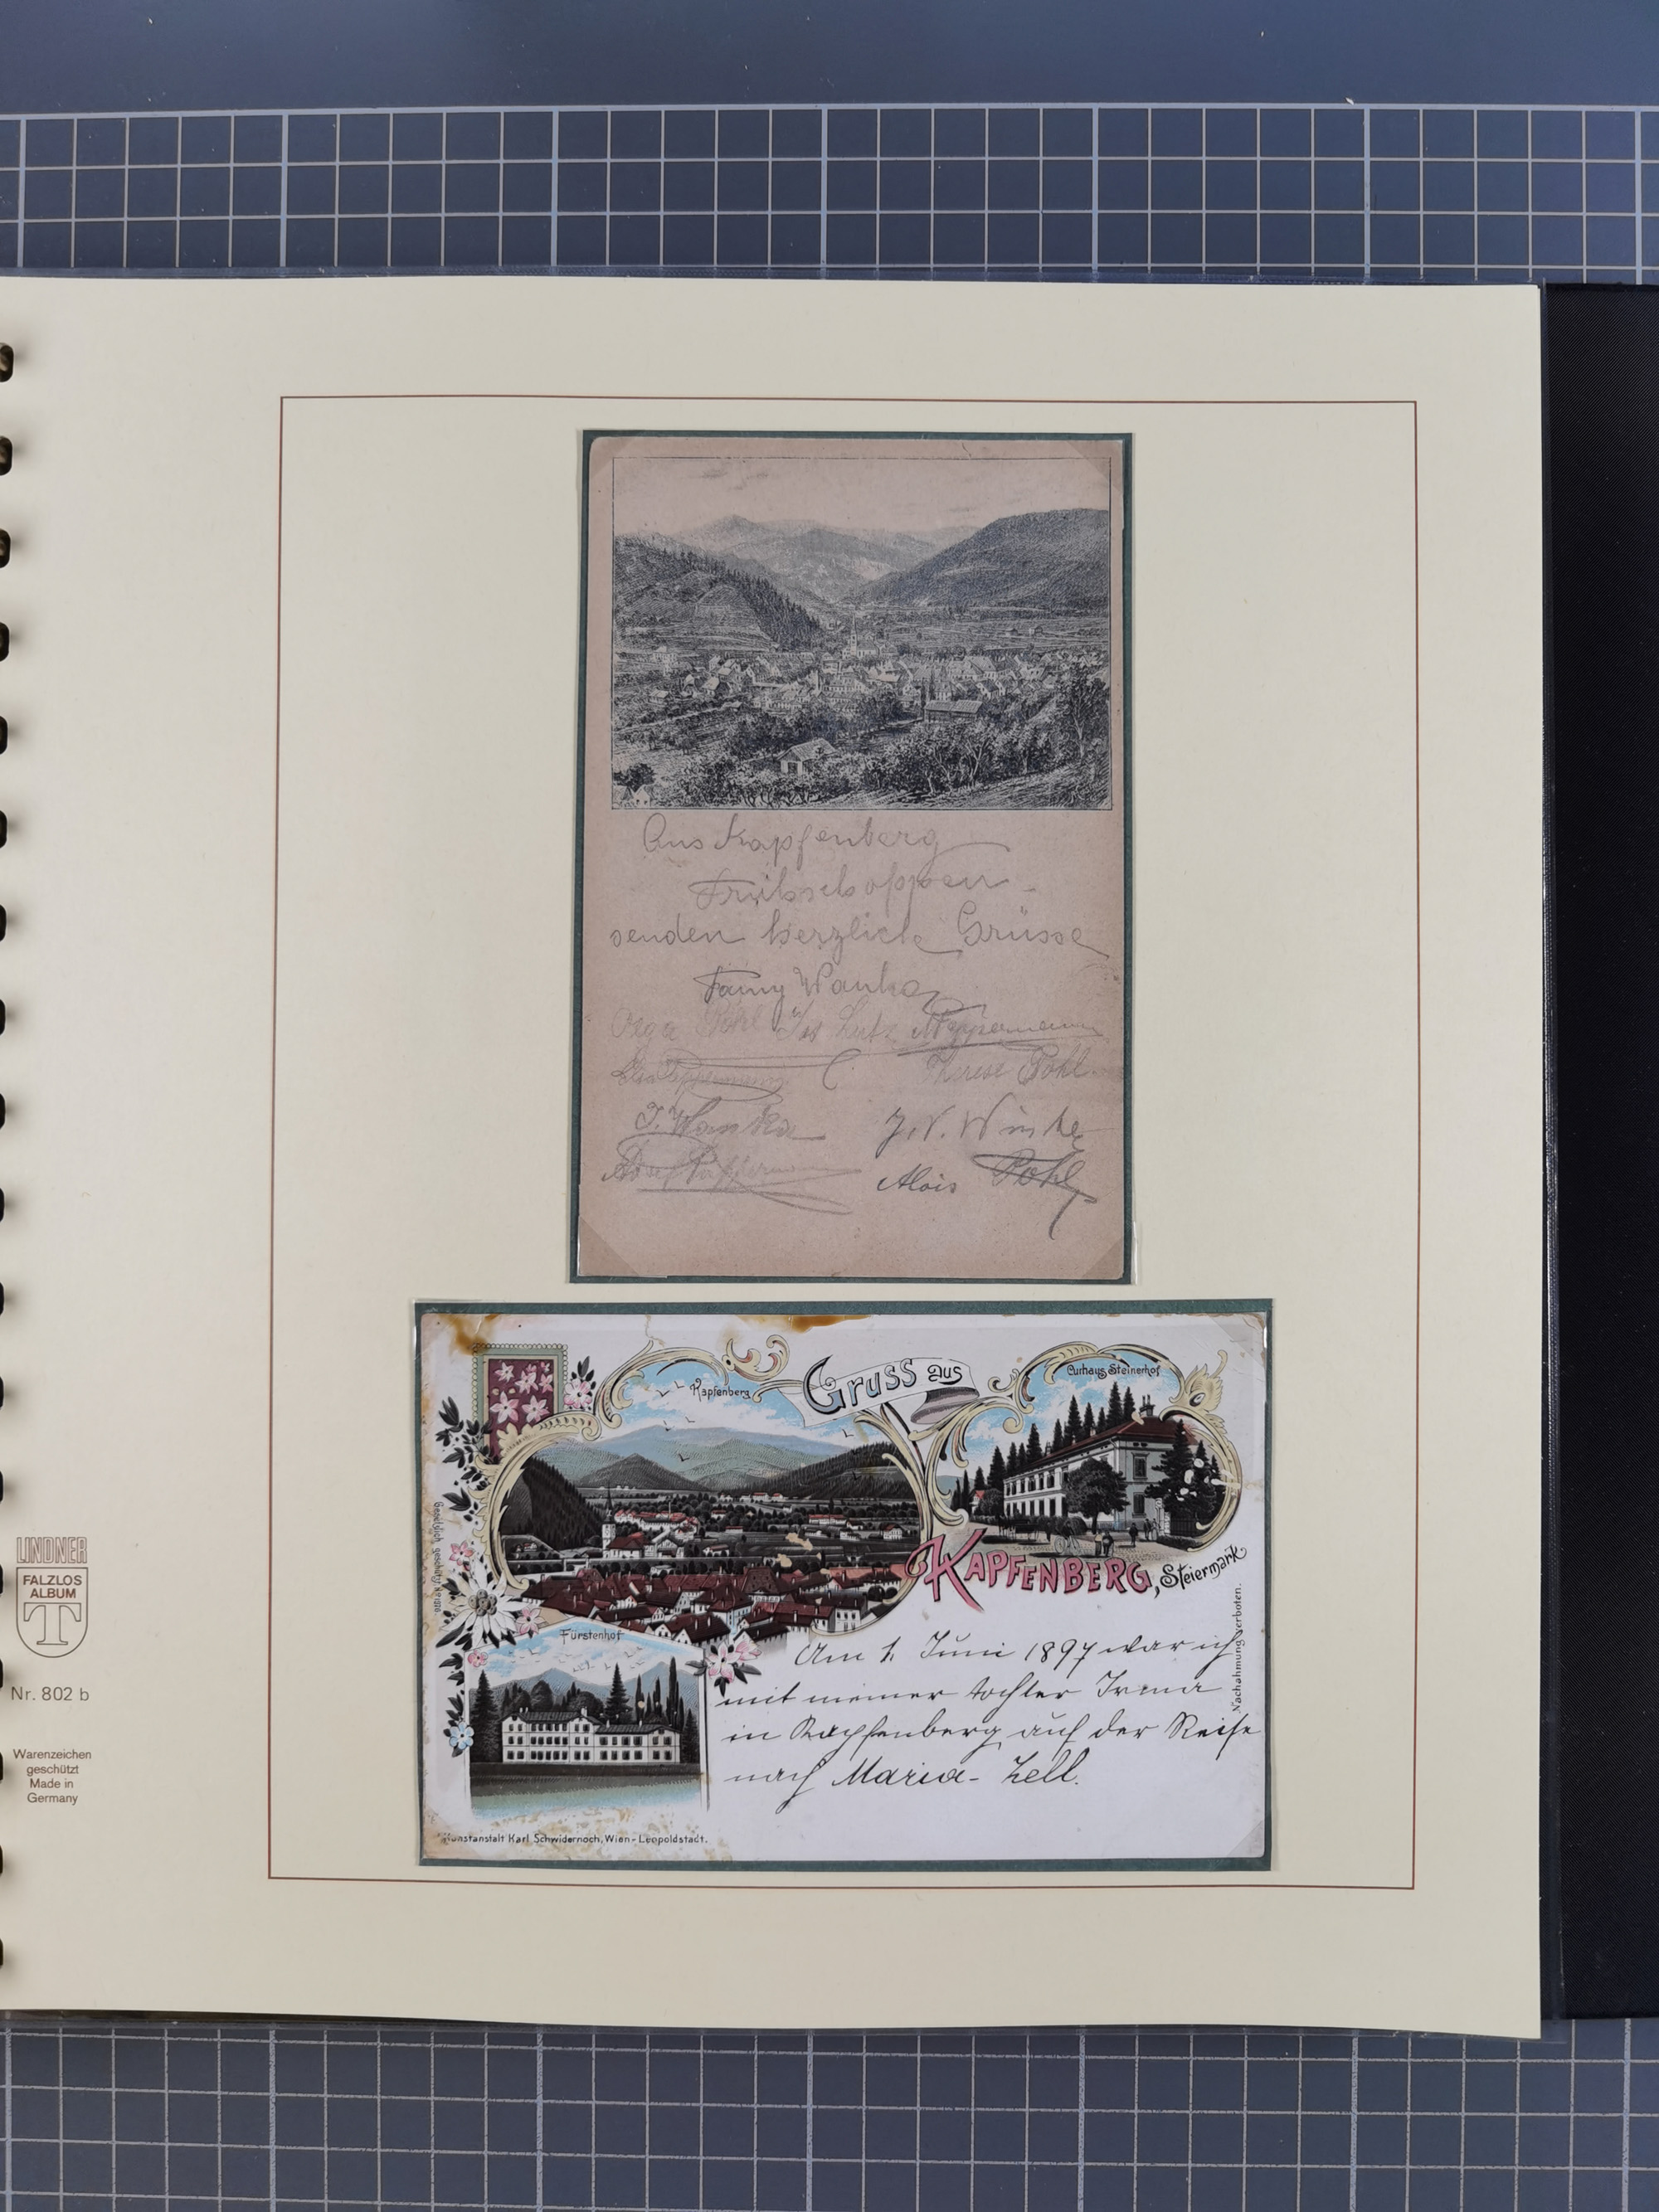 Aus Kapfenberg
Frühschoppen
senden herzliche Grüsse
Olga Pohl Lutz
Therese Pohl
J. Wanka
Alois Pohl
Gruss aus
Kapfenberg
Curhaus Steinerhof
KAPFENBERG, Steiermark
Fürstenhof
Nachahmung verboten.
Am 1. Juni 1897 war ich
mit meiner Tochter Irma
in Kapfenberg auf der Reise
nach Maria-Zell.
Kunstanstalt Karl Schwidernoch, Wien-Leopoldstadt.
LINDNER
FALZLOS
ALBUM
T
Nr. 802 b
Warenzeichen
geschützt
Made in
Germany